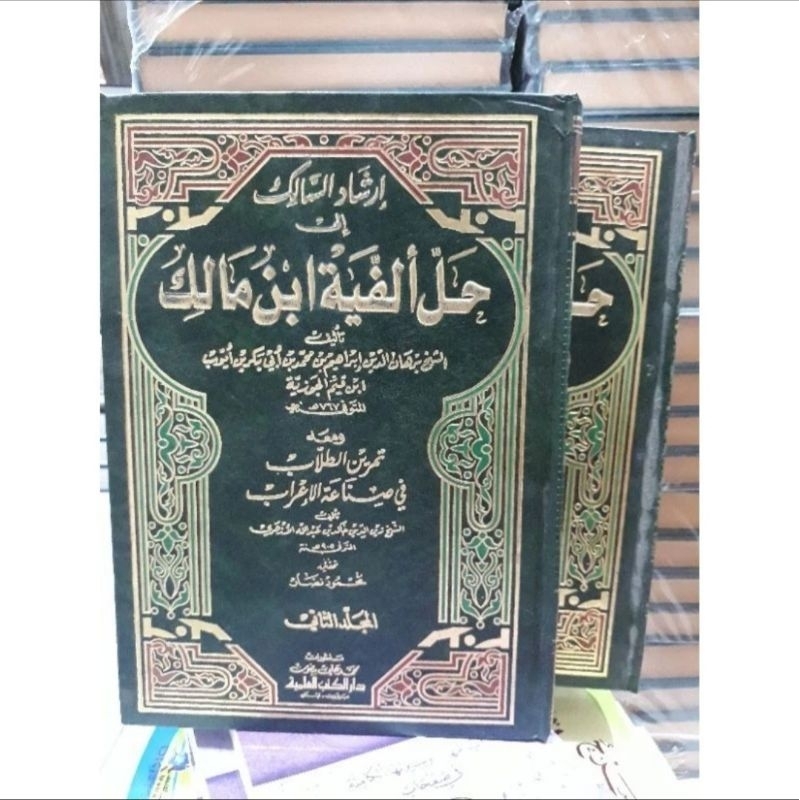 إرشاد السالك
إلى
حَلّ ألفيَة ابن مَالِك
تأليف
الشيخ برهان الدين إبراهيم بن محمد بن أبي بكر بن أيوب
ابن قيّم الجوزيّة
المتوفى ٧٦٧هـ
ومعه
تمرين الطلاب
في صناعة الإعراب
تأليف
الشيخ زين الدين خالد بن عبد الله الأزهري
المتوفى ٩٠٥هـ سنة
تحقيق
محمود نصار
المجلّد الثاني
منشورات
محمد علي بيضون
دار الكتب العلمية
بيروت - لبنان
حَلّ
في صفحات